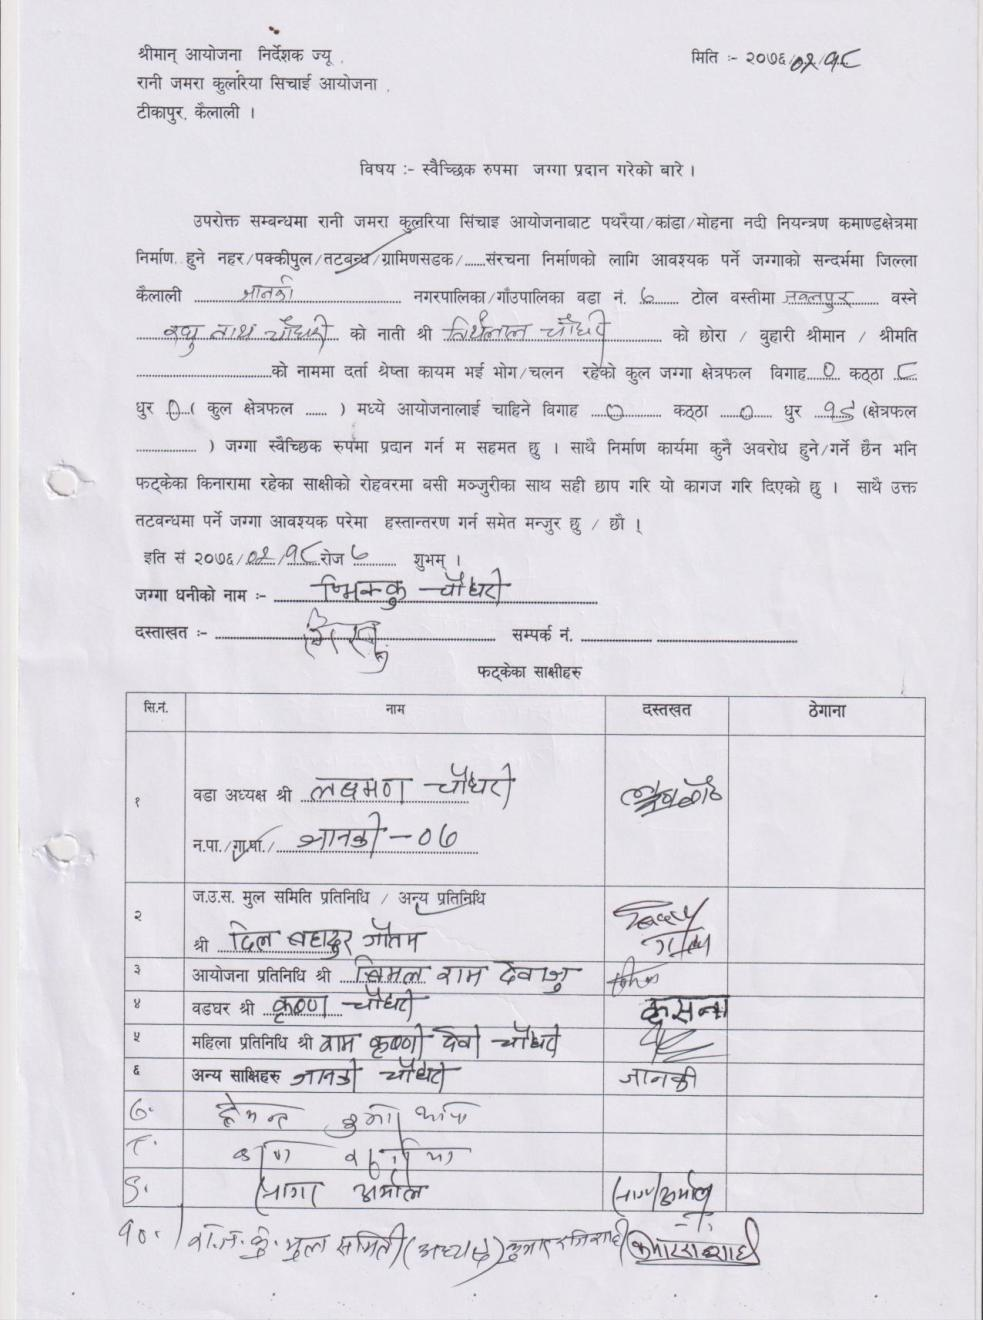 श्रीमान् आयोजना निर्देशक ज्यू,
मिति :- २०७६/०२/१८
रानी जमरा कुलरिया सिचाई आयोजना,
टीकापुर, कैलाली ।
विषय :- स्वैच्छिक रुपमा जग्गा प्रदान गरेको बारे ।
उपरोक्त सम्बन्धमा रानी जमरा कुलरिया सिंचाइ आयोजनावाट पथरैया/कांडा/मोहना नदी नियन्त्रण कमाण्डक्षेत्रमा
निर्माण हुने नहर/पक्कीपुल/तटबन्ध/ग्रामिणसडक/......संरचना निर्माणको लागि आवश्यक पर्ने जग्गाको सन्दर्भमा जिल्ला
कैलाली जानकी नगरपालिका/गाँउपालिका वडा नं. ७ टोल वस्तीमा वस्ने
नाथ चौधरी को नाती श्री चौधरी को छोरा / वुहारी श्रीमान / श्रीमति
...............को नाममा दर्ता श्रेष्ता कायम भई भोग/चलन रहेको कुल जग्गा क्षेत्रफल विगाह ० कठ्ठा ८
धुर ० ( कुल क्षेत्रफल ...... ) मध्ये आयोजनालाई चाहिने विगाह ० कठ्ठा ० धुर (क्षेत्रफल
............... ) जग्गा स्वैच्छिक रुपमा प्रदान गर्न म सहमत छु । साथै निर्माण कार्यमा कुनै अवरोध हुने/गर्ने छैन भनि
फट्केका किनारामा रहेका साक्षीको रोहवरमा वसी मञ्जुरीका साथ सही छाप गरि यो कागज गरि दिएको छु । साथै उक्त
तटवन्धमा पर्ने जग्गा आवश्यक परेमा हस्तान्तरण गर्न समेत मन्जुर छु / छौ ।
इति सं २०७६/०२/१८ रोज ७ शुभम् ।
जग्गा धनीको नाम :- चौधरी
दस्ताखत :-
सम्पर्क नं. ............... ...............
फट्केका साक्षीहरु
सि.नं. नाम दस्तखत ठेगाना
१ वडा अध्यक्ष श्री लक्ष्मण चौधरी
न.पा./गा.पा./ जानकी - ०७
२ ज.उ.स. मुल समिति प्रतिनिधि / अन्य प्रतिनिधि
श्री दिल बहादुर गौतम
३ आयोजना प्रतिनिधि श्री बिमल राम
४ वडघर श्री कृष्ण चौधरी कुसना
५ महिला प्रतिनिधि श्री राम कृष्णी देवी चौधरी
६ अन्य साक्षिहरु जानकी चौधरी जानकी
७.
८.
९.
१०. रा.ज.कु. मुल समिती (अध्यक्ष)